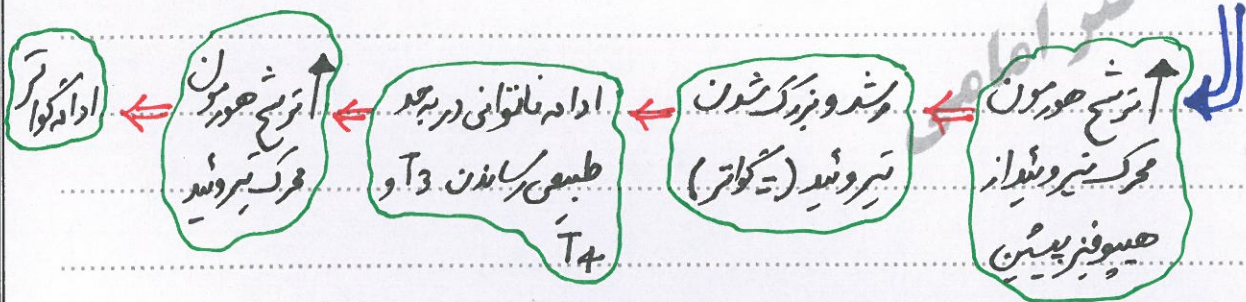 ↑ ترشح هورمون
محرک تیروئید از
هیپوفیز پیشین
رشد و بزرگ شدن
تیروئید (= گواتر)
ادامه ناتوانی در به حد
طبیعی رساندن T3 و
T4
↑ ترشح هورمون
محرک تیروئید
ادامه گواتر
امامی